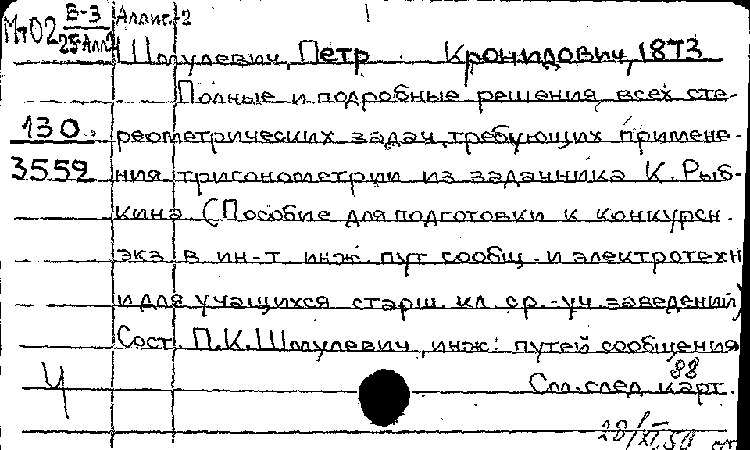 Мт02 В-3 Аллис-2
25Алл
Шмулевич, Петр Кронидович, 1873
Полные и подробные решения всех сте-
130. реометрических задач, требующих примене-
3559 ния тригонометрии из задачника К. Рыб-
кина (Пособие для подготовки к конкурсн.
экз в ин-т инж. пут сообщ. и электротехн
и для учащихся старш. кл. ср.-уч. заведений)
Сост. П.К. Шмулевич, инж. путей сообщения
Ч 88
См. след карт.
28/XI.50